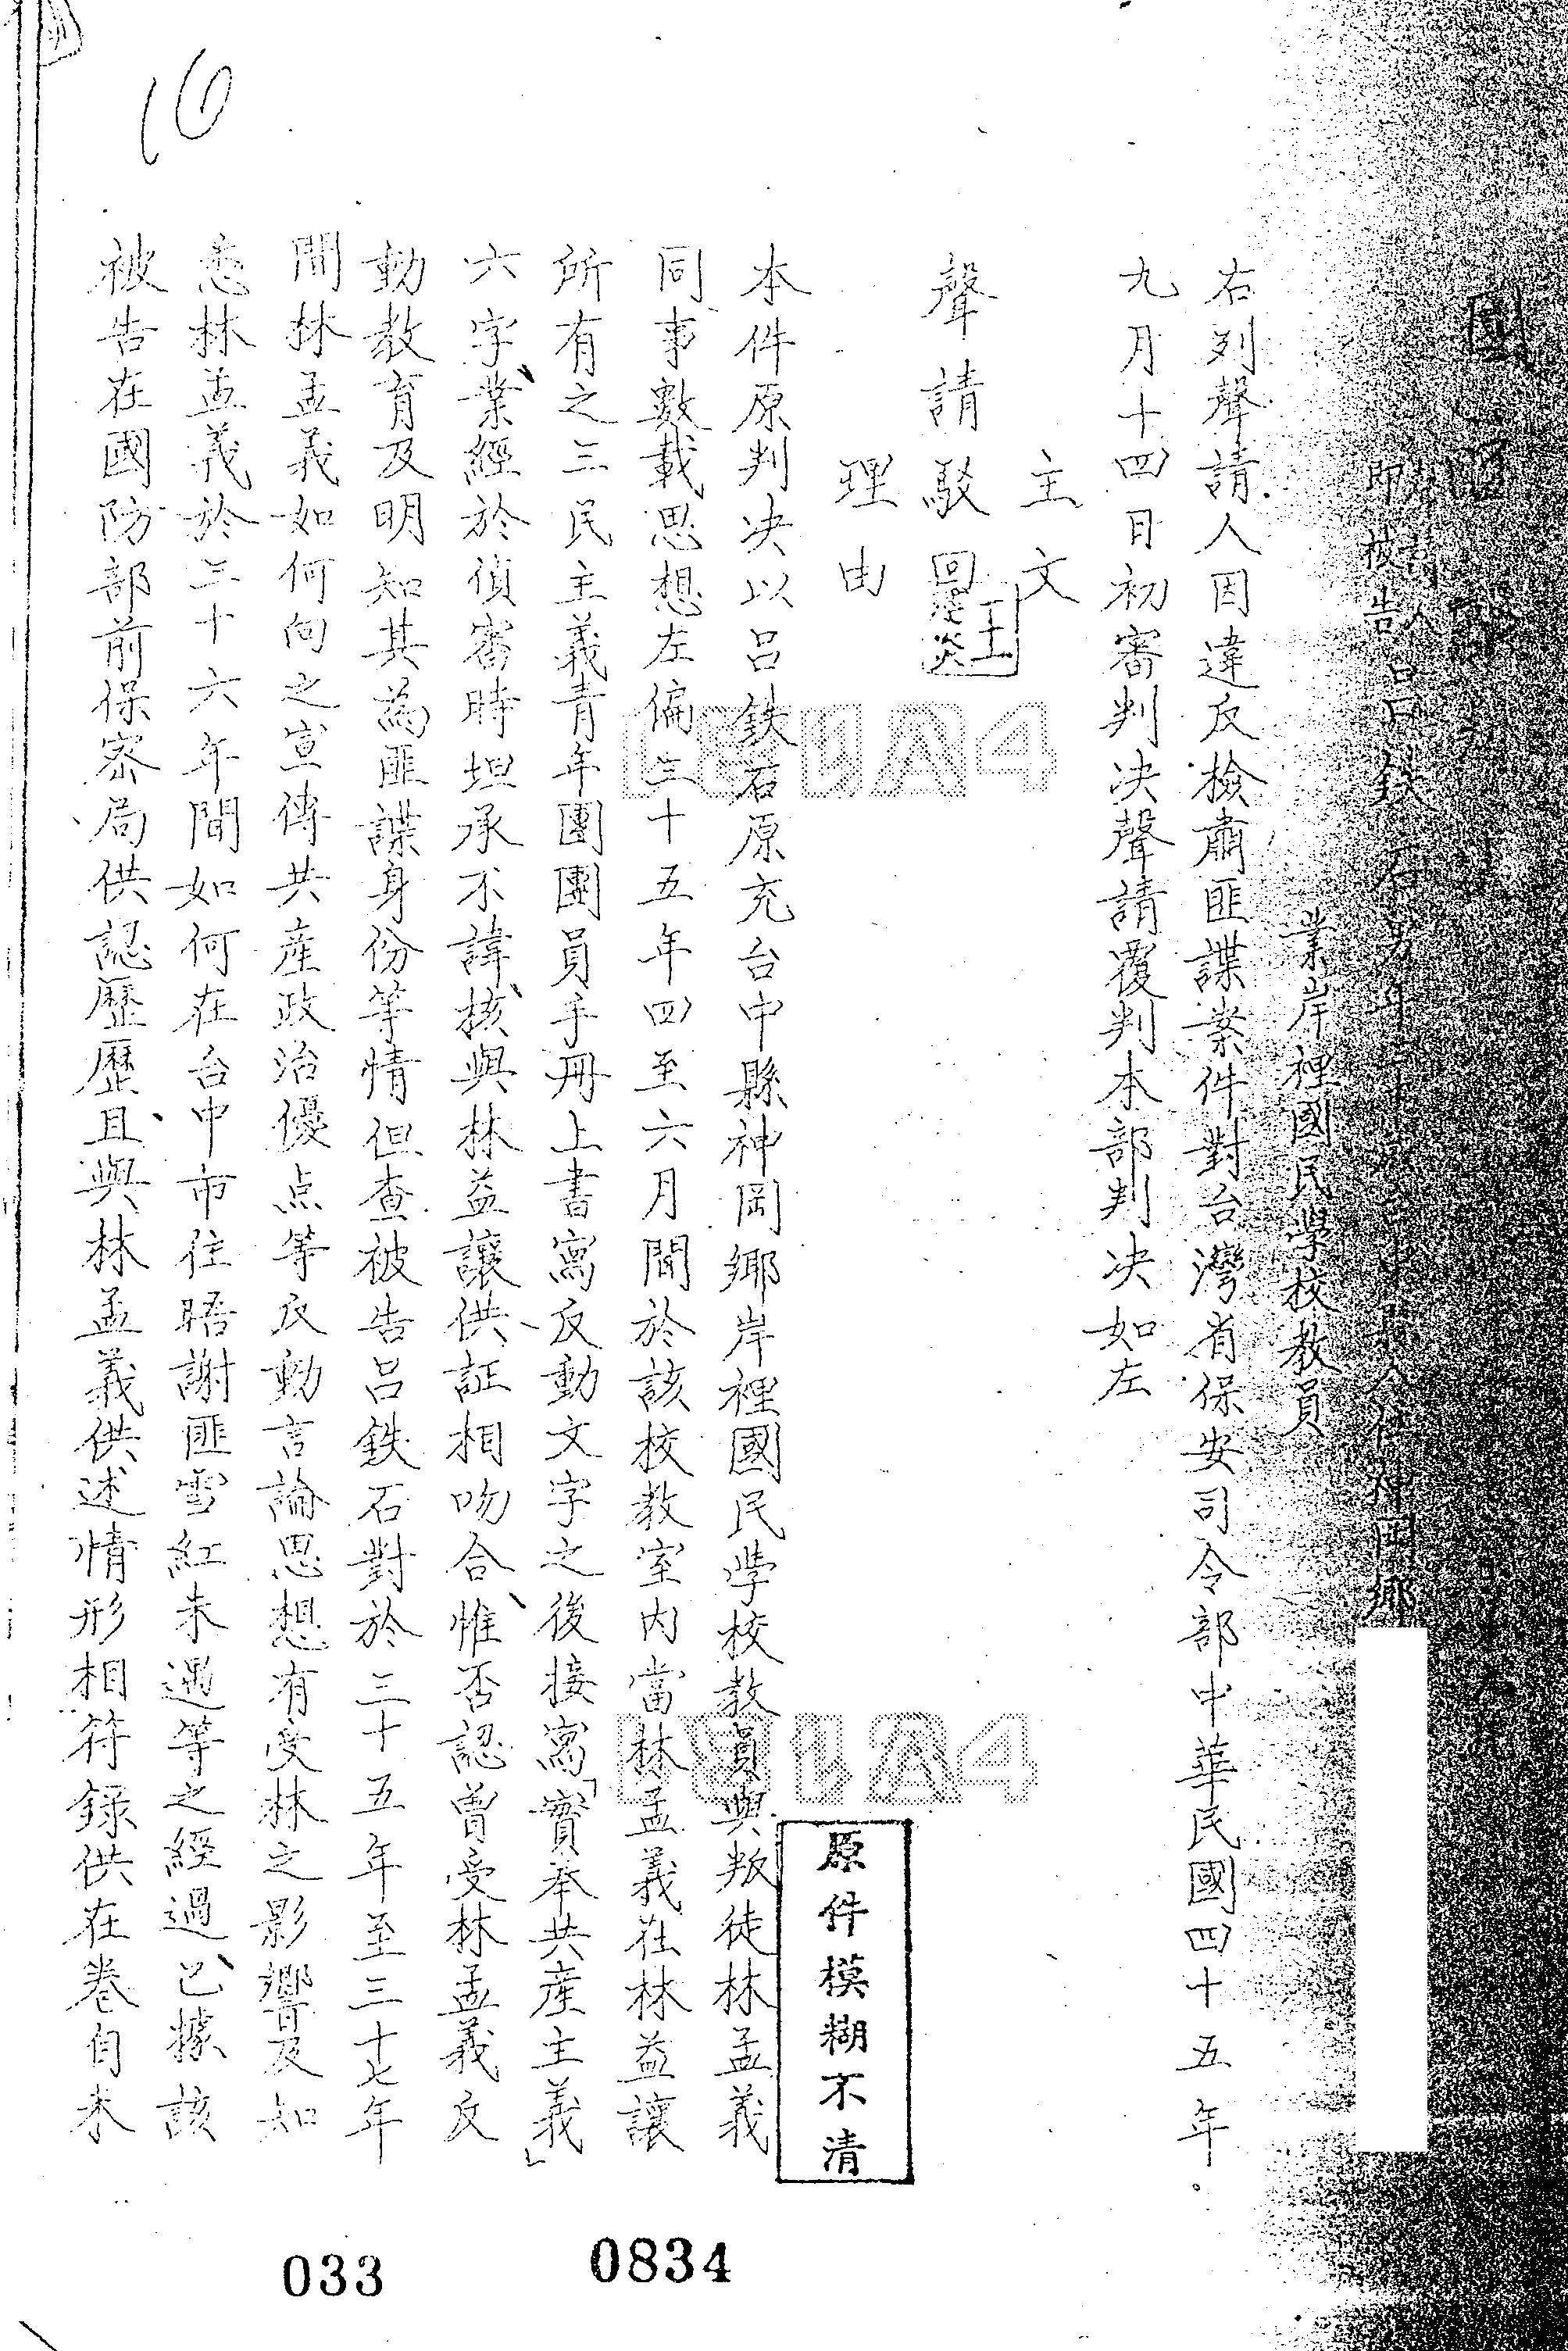 即被告呂鉄石男年
住神岡鄉
業岸裡國民學校教員
右列聲請人因違反檢肅匪諜案件對台灣省保安司令部中華民國四十五年
九月十四日初審判决聲請覆判本部判决如左
主文
聲請駁回
理由
本件原判决以呂鉄石原充台中縣神岡鄉岸裡國民學校教員與叛徒林孟義
同事數載思想左偏三十五年四至六月間於該校教室內當林孟義在林益讓
所有之三民主義青年團團員手冊上書寫反動文字之後接寫「實奉共產主義」
六字業經於偵審時坦承不諱核與林益讓供証相吻合惟否認曾受林孟義反
動教育及明知其為匪諜身份等情但查被告呂鉄石對於三十五年至三十七年
間林孟義如何向之宣傳共產政治優点等反動言論思想有受林之影響及知
悉林孟義於三十六年間如何在台中市住晤謝匪雪紅未遇等之經過已據該
被告在國防部前保密局供認歷歷且與林孟義供述情形相符錄供在卷自未
原件模糊不清
16
033
0834